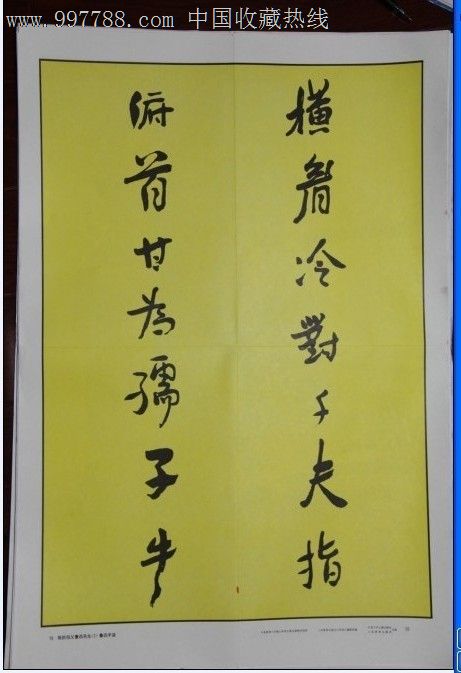 www.997788.com 中国收藏热线
横眉冷對千夫指
俯首甘為孺子牛